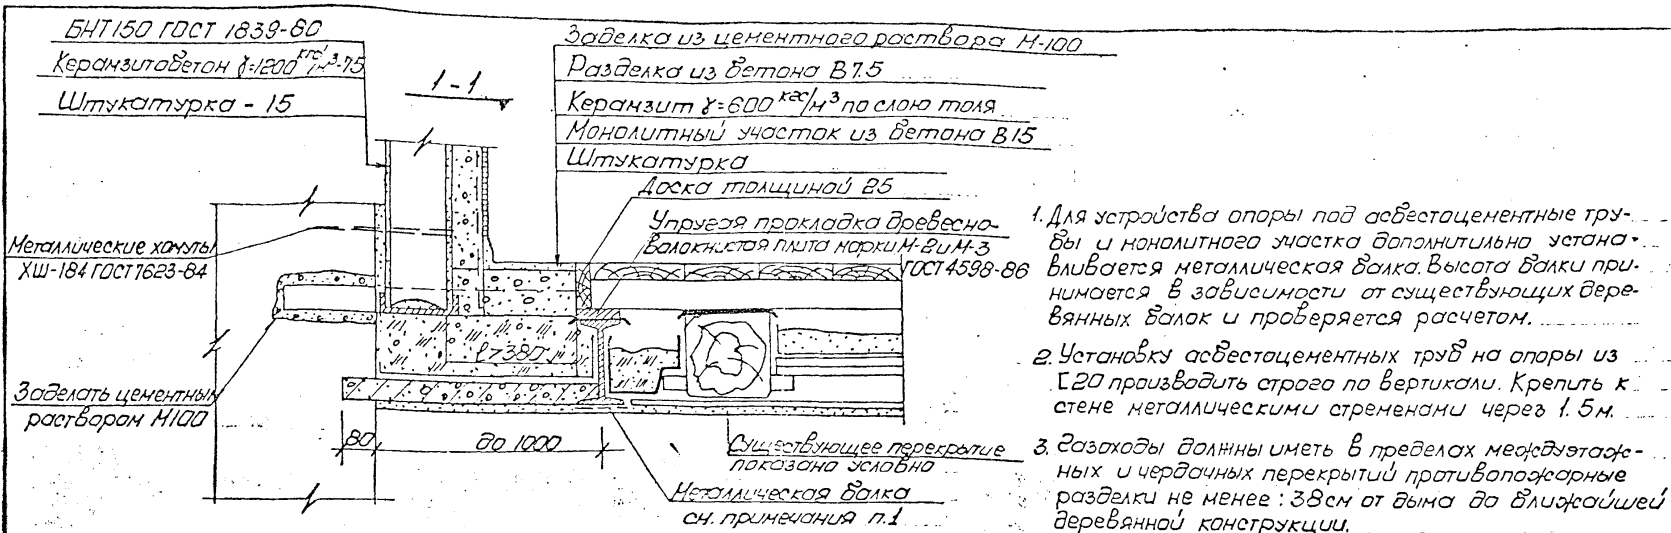 БНТ150 ГОСТ 1839-80
Керамзитобетон γ=1200 кгс/м³-75
Штукатурка - 15
1-1
Заделка из цементного раствора М-100
Разделка из бетона В7.5
Керамзит γ=600 кгс/м³ по слою толя
Монолитный участок из бетона В15
Штукатурка
Доска толщиной 25
Упругая прокладка древесно-
волокнистая плита марки М-2 и М-3
ГОСТ 4598-86
Металлические хомуты
ХШ-184 ГОСТ 7623-84
Заделать цементным
раствором М100
ℓ>380
80
до 1000
Существующее перекрытие
показано условно
Металлическая балка
см. примечания п.1
1. Для устройства опоры под асбестоцементные тру-
бы и монолитного участка дополнительно устана-
вливается металлическая балка. Высота балки при-
нимается в зависимости от существующих дере-
вянных балок и проверяется расчетом.
2. Установку асбестоцементных труб на опоры из
[20 производить строго по вертикали. Крепить к
стене металлическими стременами через 1.5м.
3. Газоходы должны иметь в пределах междуэтаж-
ных и чердачных перекрытий противопожарные
разделки не менее: 38см от дыма до ближайшей
деревянной конструкции.